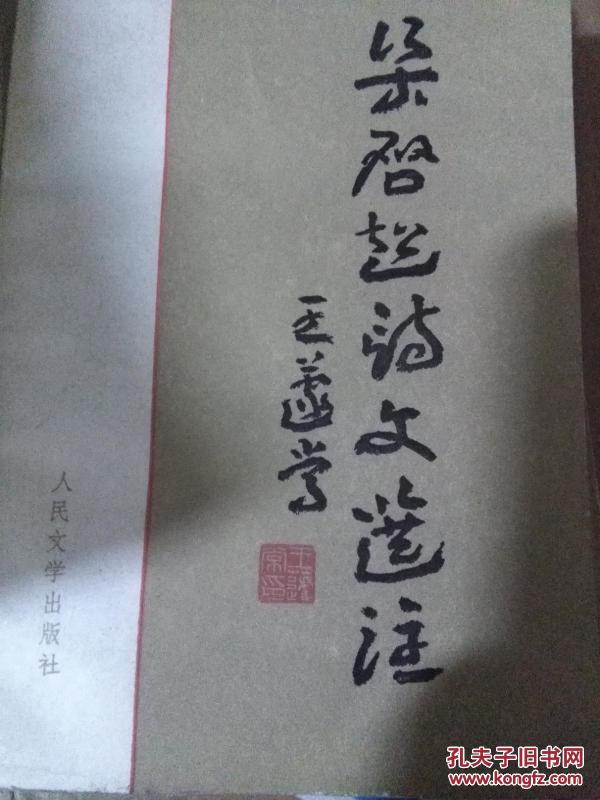 梁启超诗文選注
王蘧常
王蘧常印
人民文学出版社
孔夫子旧书网
www.kongfz.com